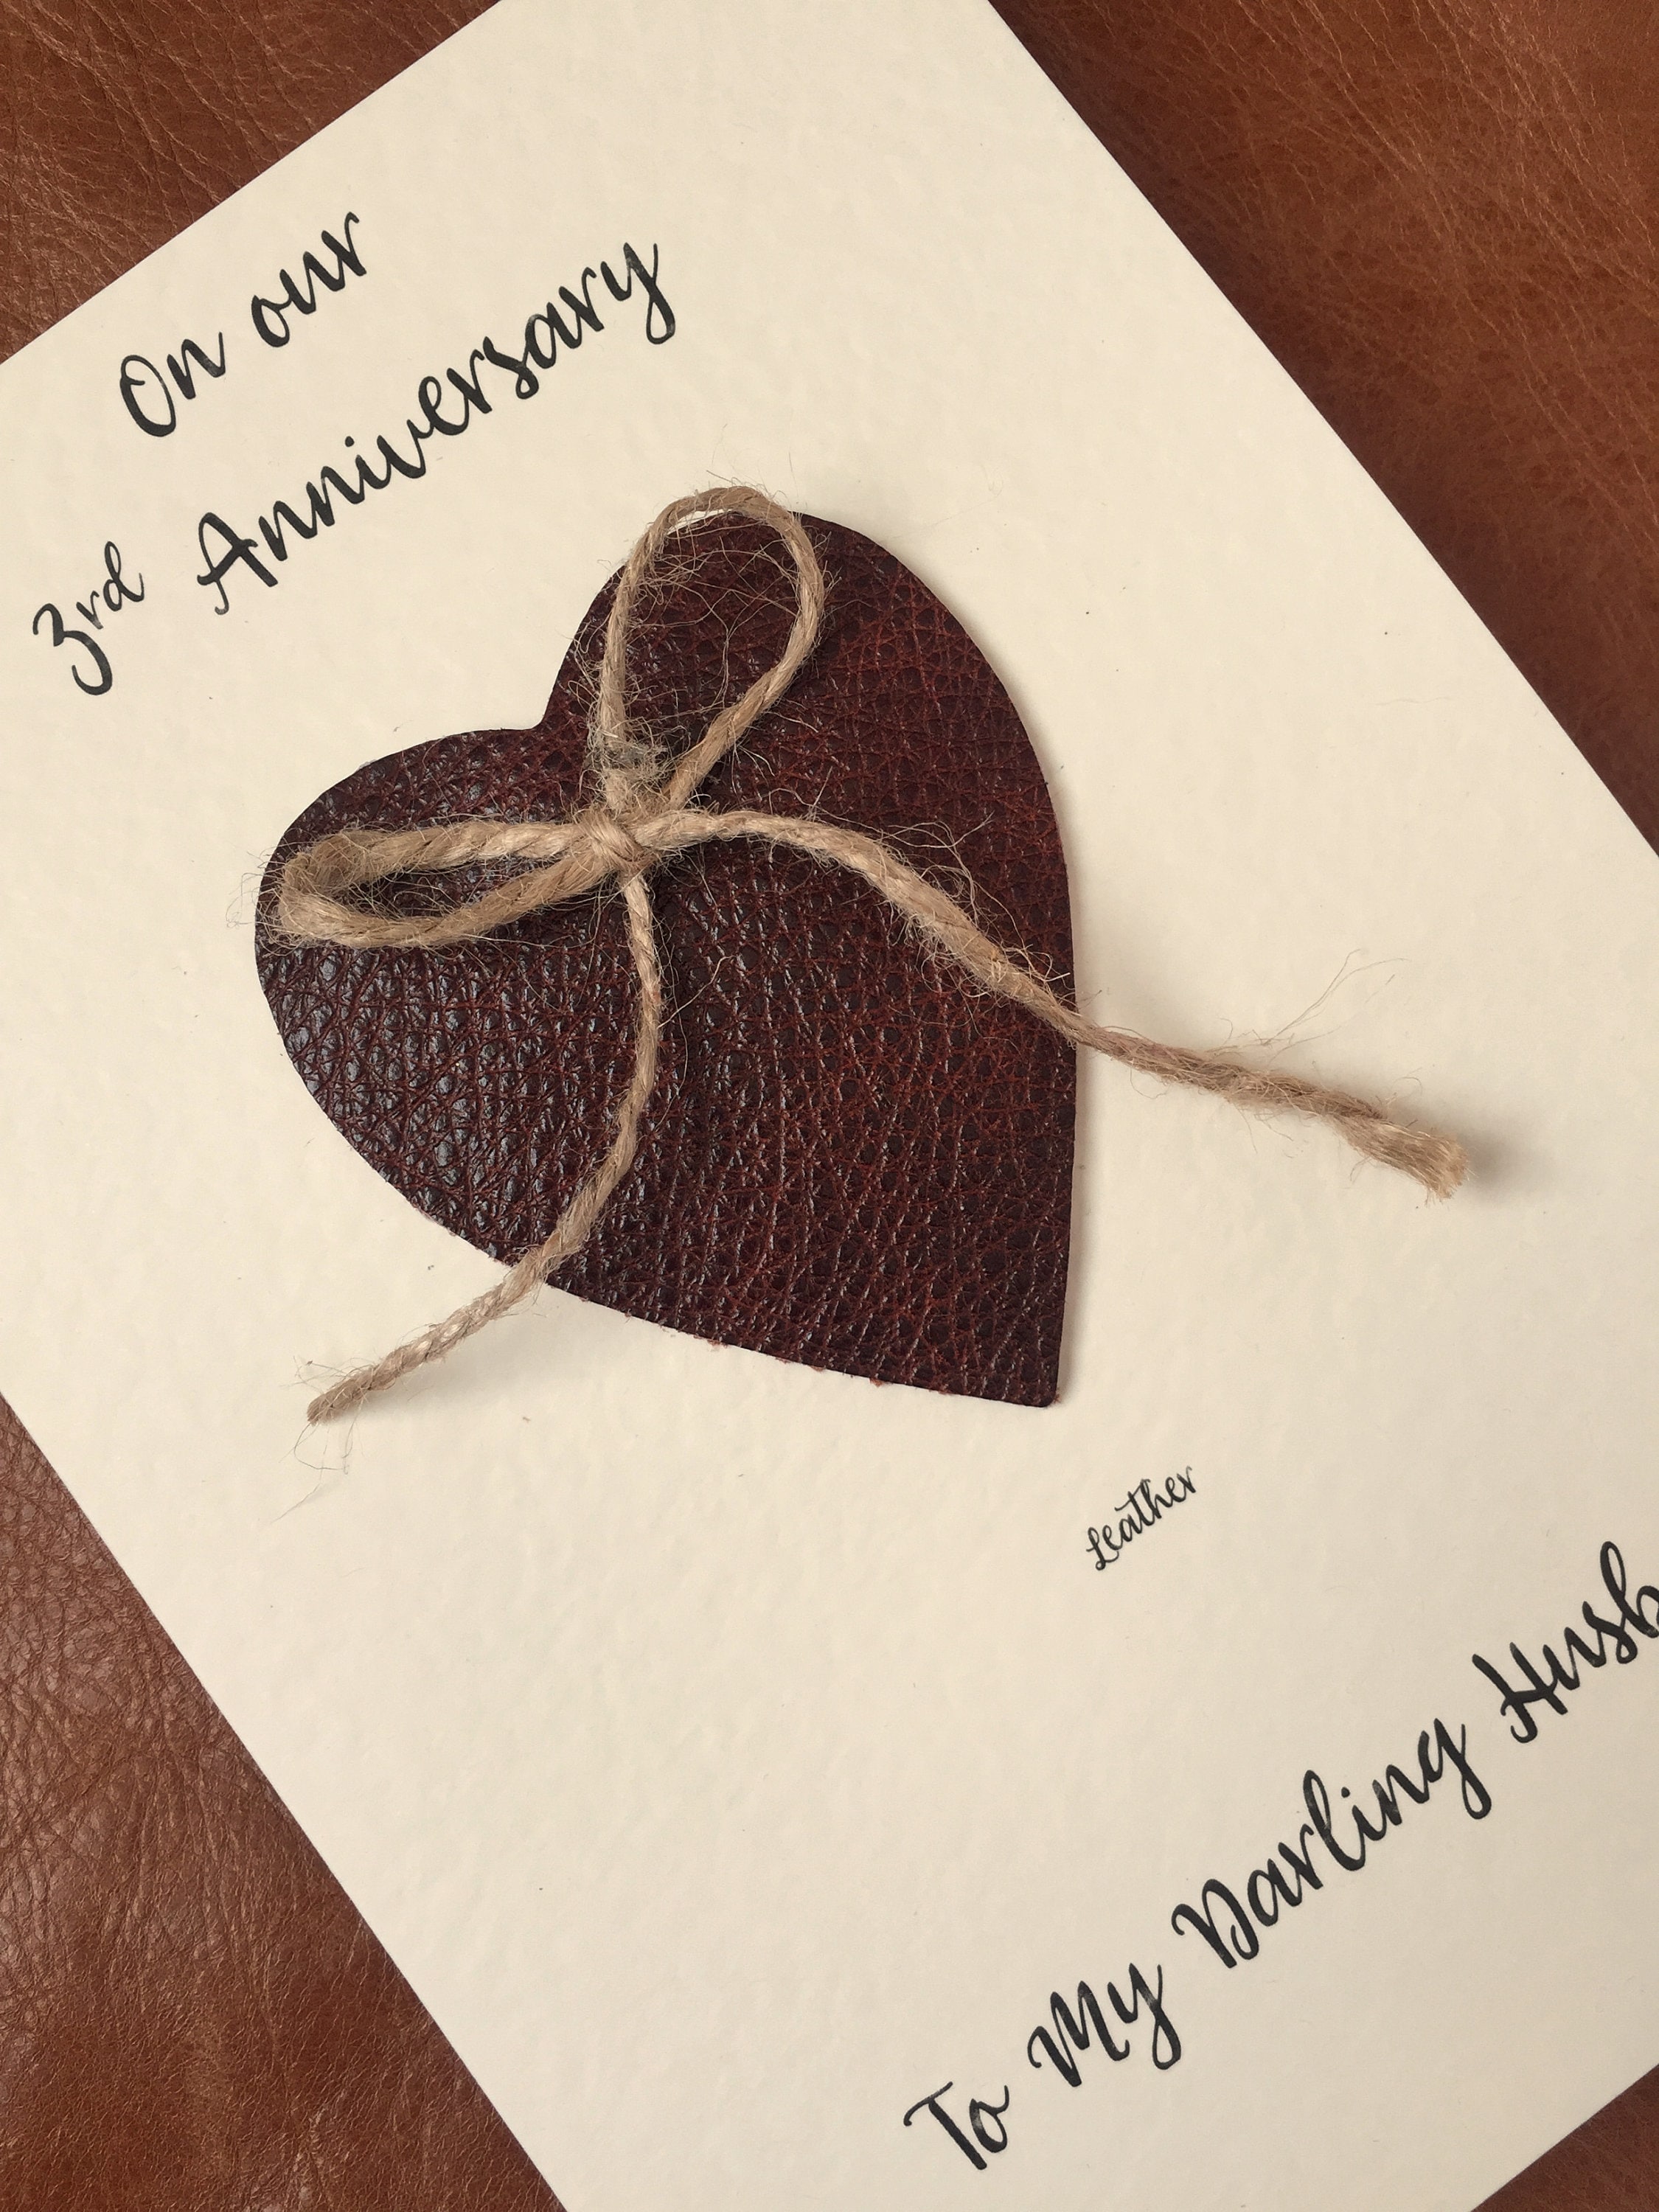 On our
3rd Anniversary
Leather
To My Darling Husb